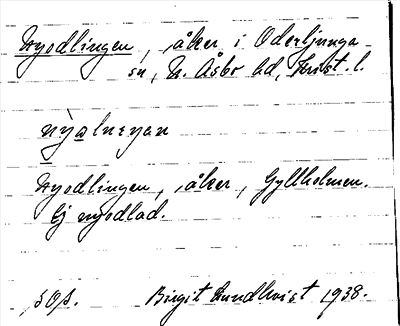 Nyodlingen, åker i Oderljunga
sn, N. Åsbo hd, Krist. l.
Nyodlingen, åker, Gyllholmen.
Ej nyodlad.
Birgit Lundkvist 1938.